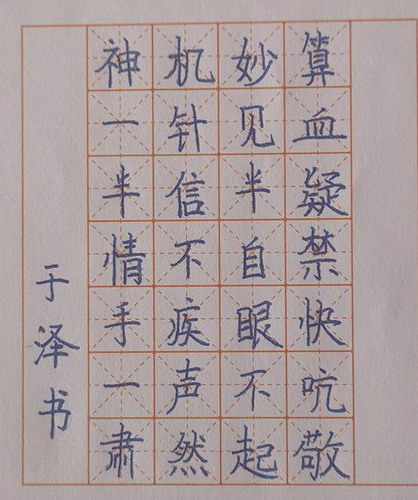 神机妙算
一针见血
半信半疑
情不自禁
手疾眼快
一声不吭
肃然起敬
于泽书